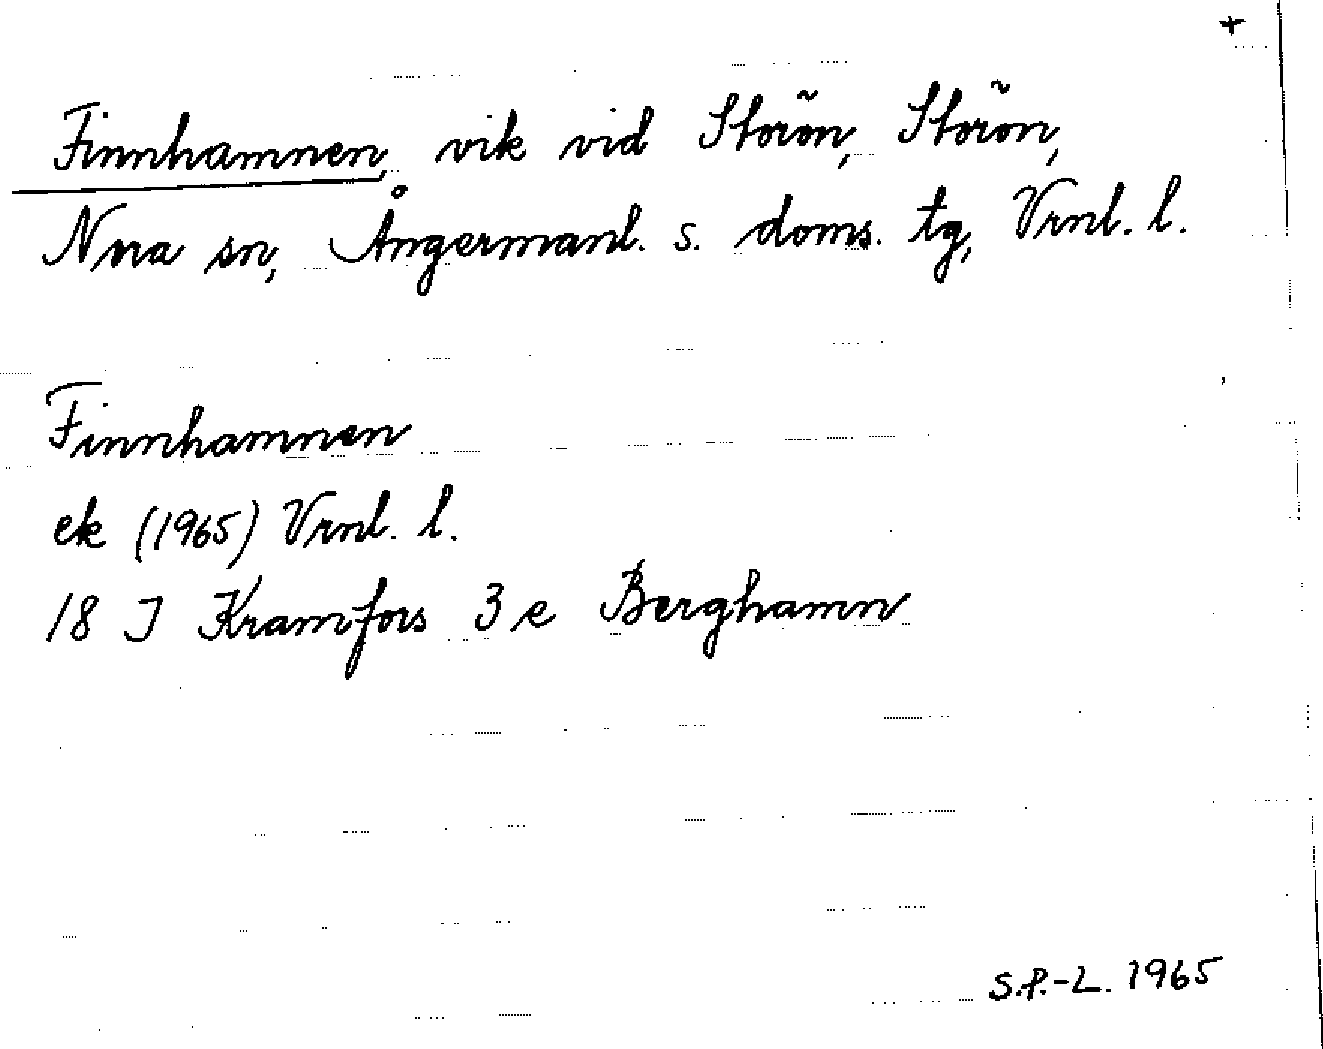 +
Finnhamnen, vik vid Storön, Storön,
Nora sn, Ångermanl. s. doms. tg, Vrnl. l.
Finnhamnen
ek (1965) Vrnl. l.
18 J Kramfors 3 e Berghamn
S.P.-L. 1965